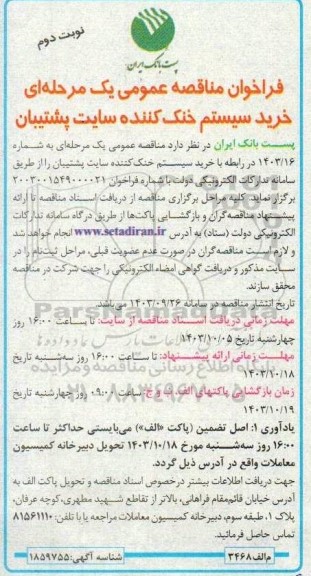 نوبت دوم
پست بانک ایران
فراخوان مناقصه عمومی یک مرحله‌ای
خرید سیستم خنک‌کننده سایت پشتیبان
پست بانک ایران در نظر دارد مناقصه عمومی یک مرحله‌ای به شماره
۱۴۰۳/۱۶ در رابطه با خرید سیستم خنک‌کننده سایت پشتیبان را از طریق
سامانه تدارکات الکترونیکی دولت با شماره فراخوان ۲۰۰۳۰۰۱۵۴۹۰۰۰۰۲۱
برگزار نماید. کلیه مراحل برگزاری مناقصه از دریافت اسناد مناقصه تا ارائه
پیشنهاد مناقصه‌گران و بازگشایی پاکت‌ها از طریق درگاه سامانه تدارکات
الکترونیکی دولت (ستاد) به آدرس www.setadiran.ir انجام خواهد شد
و لازم است مناقصه‌گران در صورت عدم عضویت قبلی، مراحل ثبت‌نام را در
سایت مذکور و دریافت گواهی امضاء الکترونیکی را جهت شرکت در مناقصه
محقق سازند.
تاریخ انتشار مناقصه در سامانه ۱۴۰۳/۰۹/۲۶ می‌باشد.
مهلت زمانی دریافت اسناد مناقصه از سایت: تا ساعت ۱۶:۰۰ روز
چهارشنبه تاریخ ۱۴۰۳/۱۰/۰۵
مهلت زمانی ارائه پیشنهاد: تا ساعت ۱۶:۰۰ روز سه‌شنبه تاریخ
۱۴۰۳/۱۰/۱۸
زمان بازگشایی پاکتهای الف، ب و ج: ساعت ۰۹:۰۰ روز چهارشنبه تاریخ
۱۴۰۳/۱۰/۱۹
یادآوری ۱: اصل تضمین (پاکت «الف») می‌بایستی حداکثر تا ساعت
۱۶:۰۰ روز سه‌شنبه مورخ ۱۴۰۳/۱۰/۱۸ تحویل دبیرخانه کمیسیون
معاملات واقع در آدرس ذیل گردد.
جهت دریافت اطلاعات بیشتر درخصوص اسناد مناقصه و تحویل پاکت الف به
آدرس خیابان قائم‌مقام فراهانی، بالاتر از تقاطع شهید مطهری، کوچه عرفان،
پلاک ۱، طبقه سوم، دبیرخانه کمیسیون معاملات مراجعه یا با تلفن: ۸۱۵۶۱۱۱۰
تماس حاصل فرمائید.
م‌الف ۳۴۶۸
شناسه آگهی: ۱۸۵۹۷۵۵